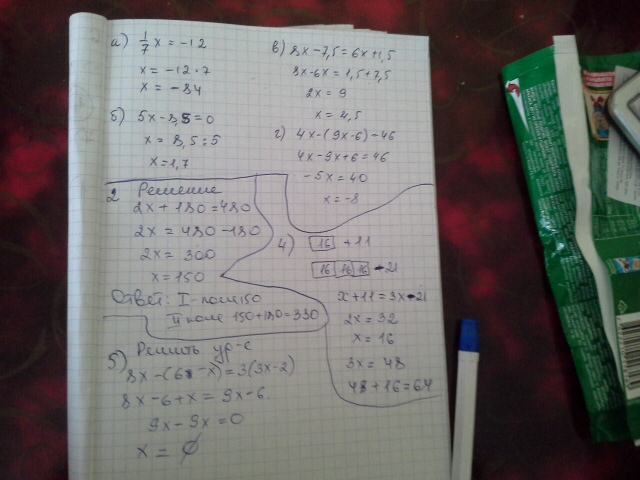 а) 1/7 x = -12
x = -12·7
x = -84
б) 5x-8,5=0
x = 8,5:5
x=1,7
в) 8x-7,5=6x+1,5
8x-6x=1,5+7,5
2x=9
x=4,5
г) 4x-(9x-6)-46
4x-9x+6=46
-5x=40
x=-8
2 Решение
2x+180=480
2x=480-180
2x=300
x=150
Ответ: I-поле 150
II поле 150+180=330
4) 16 +11
16 16 16 -21
x+11=3x-21
2x=32
x=16
3x=48
48+16=64
5) Решить ур-е
8x-(6-x)=3(3x-2)
8x-6+x=9x-6.
9x-9x=0
x=∅